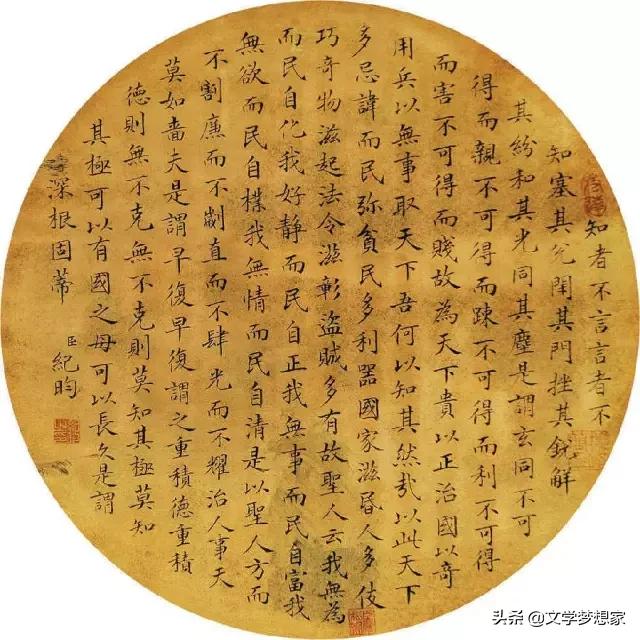 知者不言言者不
知塞其兊閇其門挫其銳解
其紛和其光同其塵是謂玄同不可
得而親不可得而踈不可得而利不可得
而害不可得而賤故為天下貴以正治國以奇
用兵以無事取天下吾何以知其然哉以此天下
多忌諱而民弥貧民多利器國家滋昏人多伎
巧奇物滋起法令滋彰盜賊多有故聖人云我無為
而民自化我好静而民自正我無事而民自富我
無欲而民自樸我無情而民自清是以聖人方而
不割廉而不劌直而不肆光而不耀治人事天
莫如嗇夫是謂早復早復謂之重積德重積
德則無不克無不克則莫知其極莫知
其極可以有國之母可以長久是謂
深根固蒂
臣紀昀
头条 @文学梦想家